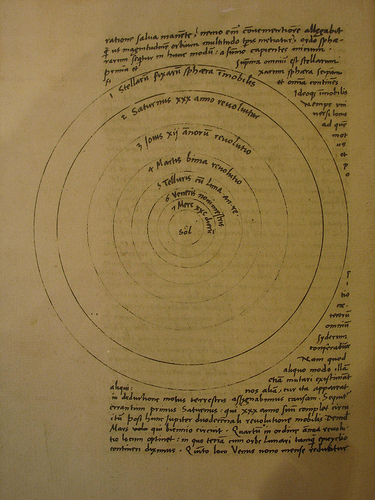 rationi salua manēte: nemo em̄ conuenientiore allegabit
q̄ ut magnitudinem orbium multitudo tp̄is metiatur, ordo sphæ-
rarum sequitur in hunc modū: a summo capientes initium.
prima et suprema omniū est stellarum
fixarum sphæra seipsam
et omnia continēs
Ideoq; īmobilis
nempe uni
uersi locus
ad quē
mot
us
et
p
1 Stellarū fixarū sphæra īmobilis
2 Saturnus xxx anno reuoluitur
3 Iouis xij annorū reuolutio
4 Martis bima reuolutio
5 Telluris cū Luna an. re.
6 Veneris nonimestris
7 Merc xxc dierū
Sol
tio
ex-
terorū
omniū
syderum
conferatur
Nam quod
aliquo modo illā
etiā mutari existimāt
aliqui: nos aliā, cur ita appareat
in deductione motus terrestris assignabimus causam. Sequit
errantium primus Saturnus: qui xxx anno suū complet circu
itū. Post hunc Iupiter duodecennali reuolutione mobilis. Demū
Mars uolu qui biennio circuit. Quartū in ordine annua reuolu-
tio locum optinet: in quo terrā cum orbe Lunari tamq̄ epicyclio
contineri diximus. Quinto loco Venus nono mense reducitur